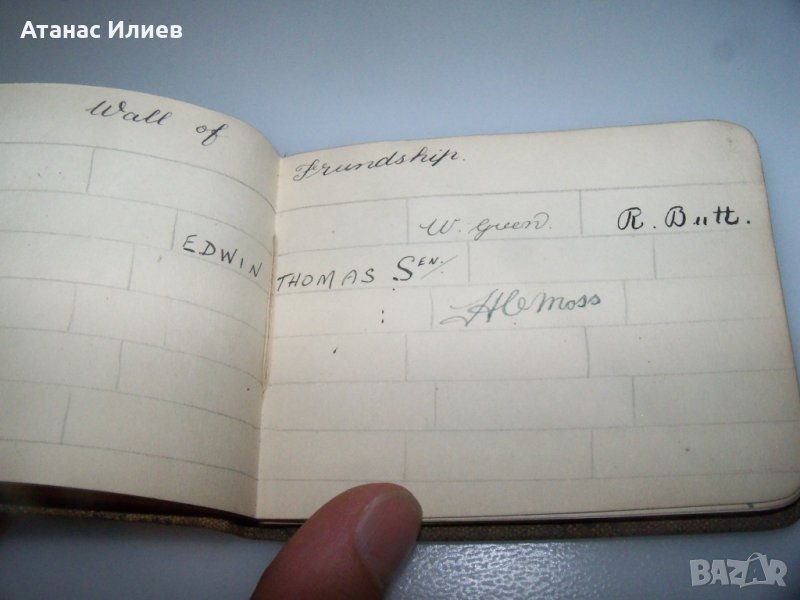 Атанас Илиев
Wall of Friendship.
W. Green. R. Butt.
EDWIN THOMAS SEN.
H C Moss
BAZAR